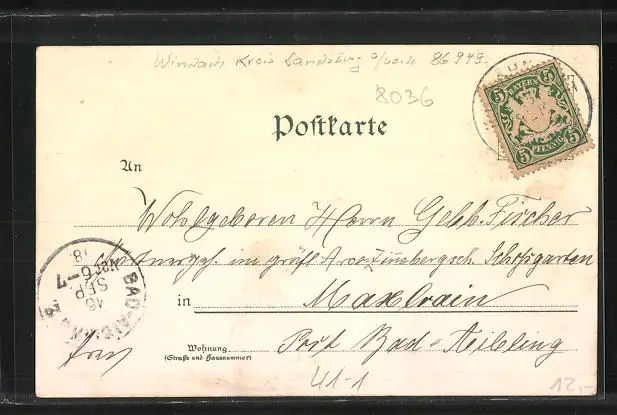 Windach Kreis Landsberg 86949.
8036
BAYERN
5 5
5 PFENNIG 5
Postkarte
An
Wohlgeboren Herrn Gebh. Fischer
im gräfl. Schloßgarten
in Maxlrain
Wohnung
(Straße und Hausnummer)
Post Bad-Aibling
BAD-AIBLING
16 SEP.
Nm 6-7
41-1
12,-